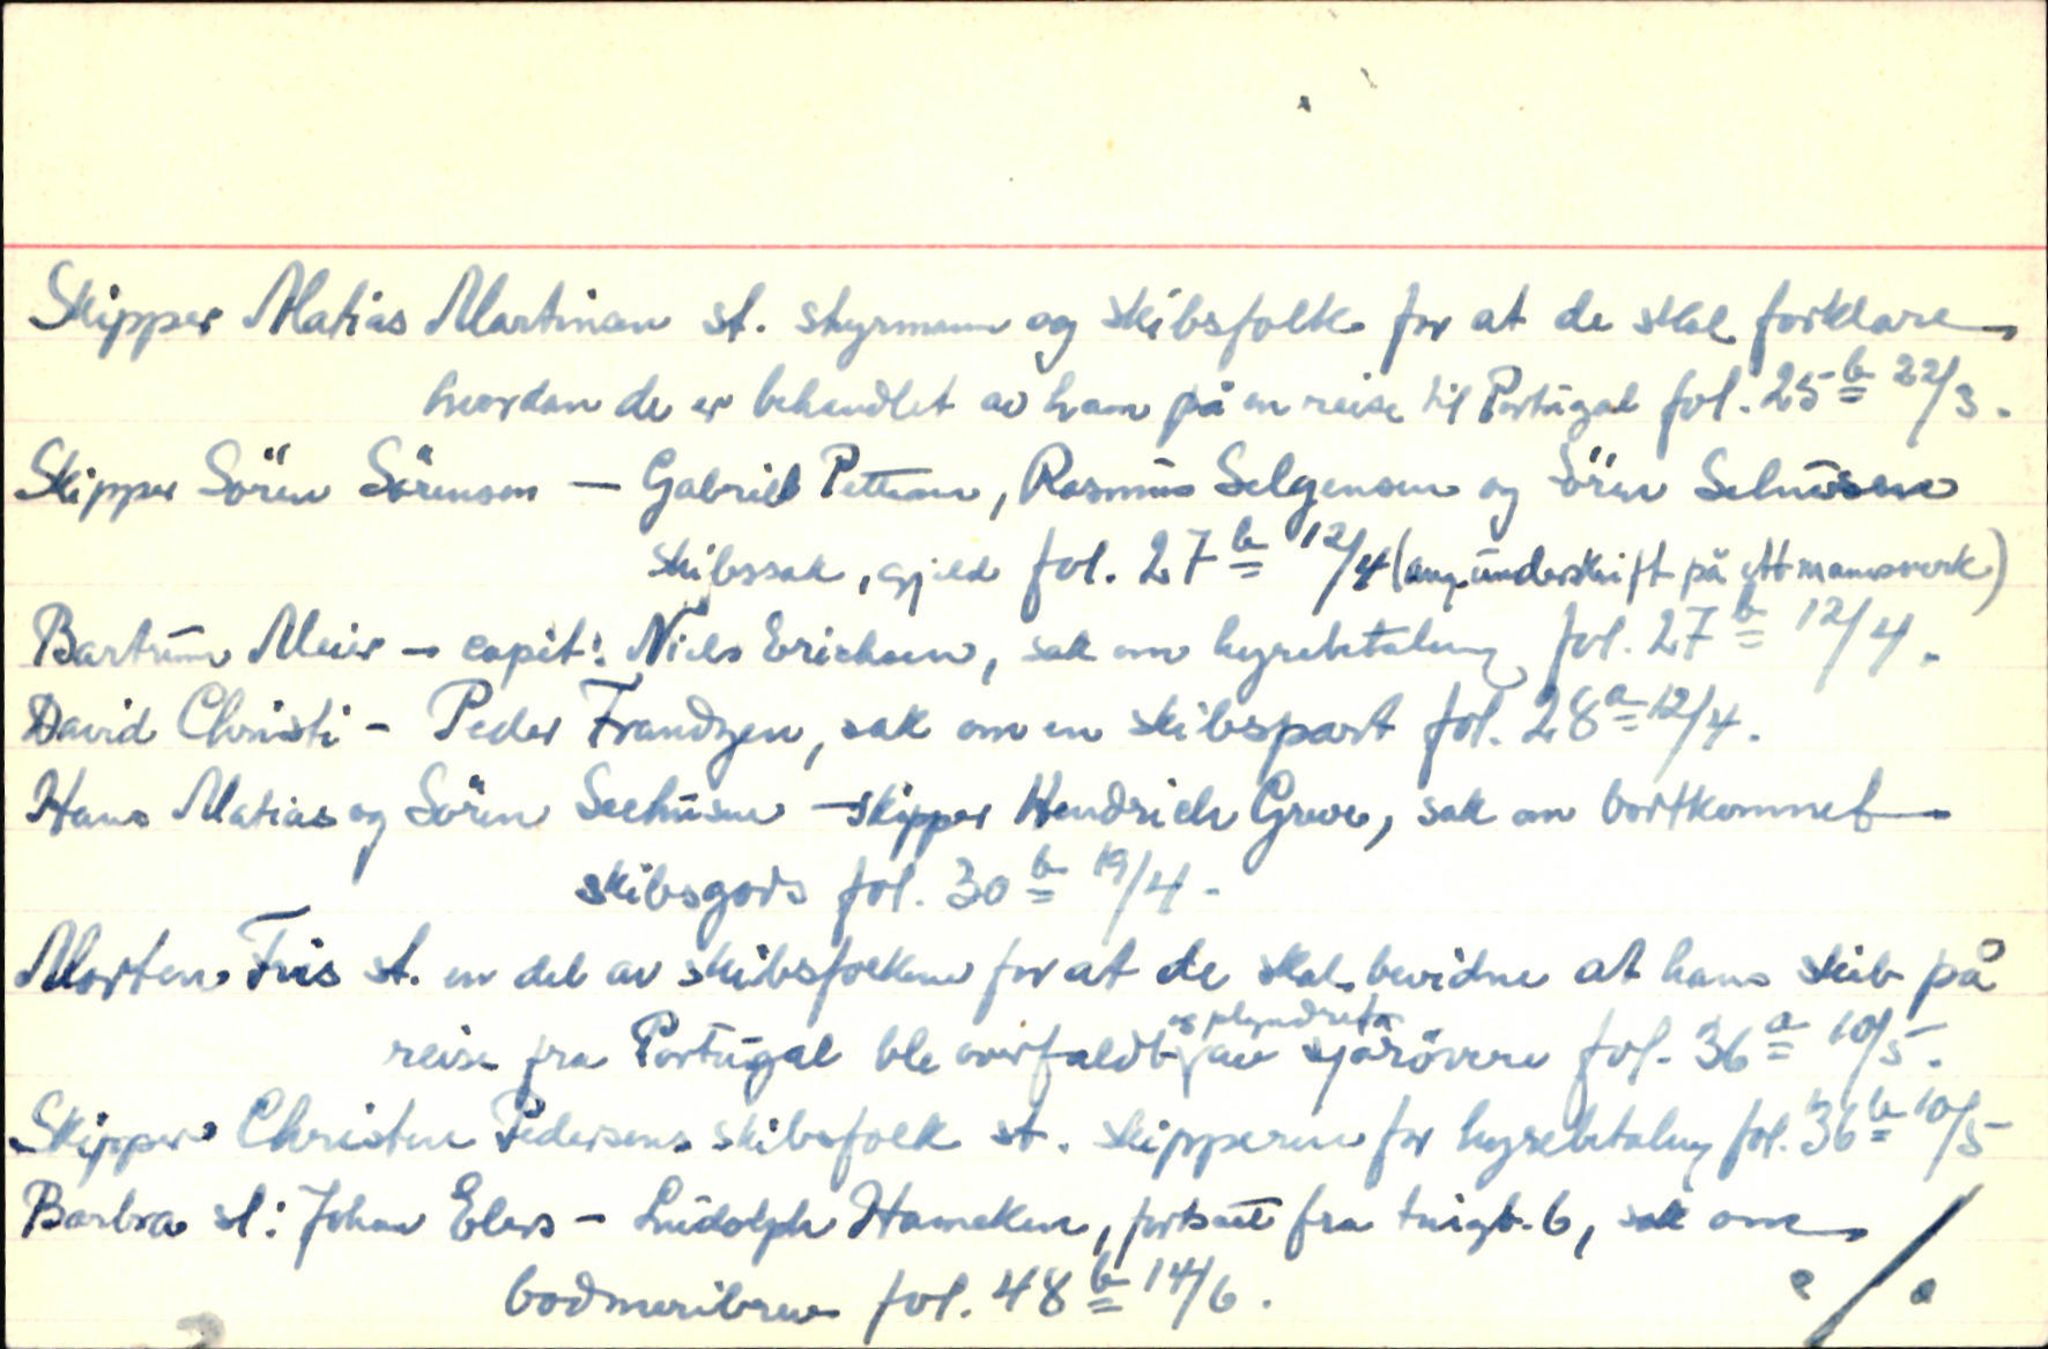 Skipper Matias Martinsen st. styrmann og skibsfolk for at de skal forklare
hvordan de er behandlet av ham på en reise til Portugal fol. 25 b 22/3.
Skipper Sören Sörensen — Gabriel Petersen, Rasmus Selgensen og Sören Sehusen
skibssak, gjeld fol. 27 b 12/4 (ang. underskrift på ett manesverk)
Bartrum Meier – capit: Niels Erichsen, sak om hyrebetaling fol. 27 b 12/4.
David Christi – Peder Frandzen, sak om en skibspart fol. 28 a 12/4.
Hans Matias og Sören Seehusen – skipper Hendrich Greve, sak om bortkommet
skibsgods fol. 30 b 19/4.
Morten Friis st. en del av skibsfolkene for at de skal bevidne at hans skib på
reise fra Portugal ble overfaldt og plyndret av sjørövere fol. 36 a 10/5.
Skipper Christen Pedersens skibsfolk st. skipperen for hyrebetaling fol. 36 b 10/5
Barbra sl: Johan Elers – Ludolph Hameken, fortsatt fra tingb. 6, sak om
bodmeribrev fol. 48 b 14/6.